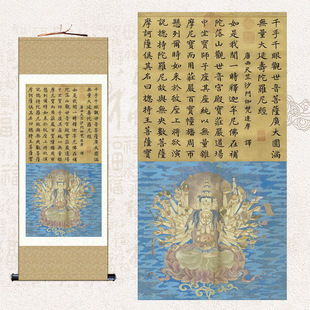 千手千眼觀世音菩薩廣大圓滿
無量大延壽陀羅尼經
唐西天竺沙門伽梵達摩 譯
如是我聞一時釋迦牟尼佛在補
陀落山觀世音宮殿寶莊嚴道場
中坐寶師子座其座純以無量雜
摩尼寶而用莊嚴百寶幢幡周帀
懸列爾時如來於彼座上將欲演
說總持陀羅尼故與無央數菩薩
摩訶薩俱其名曰總持王菩薩寶